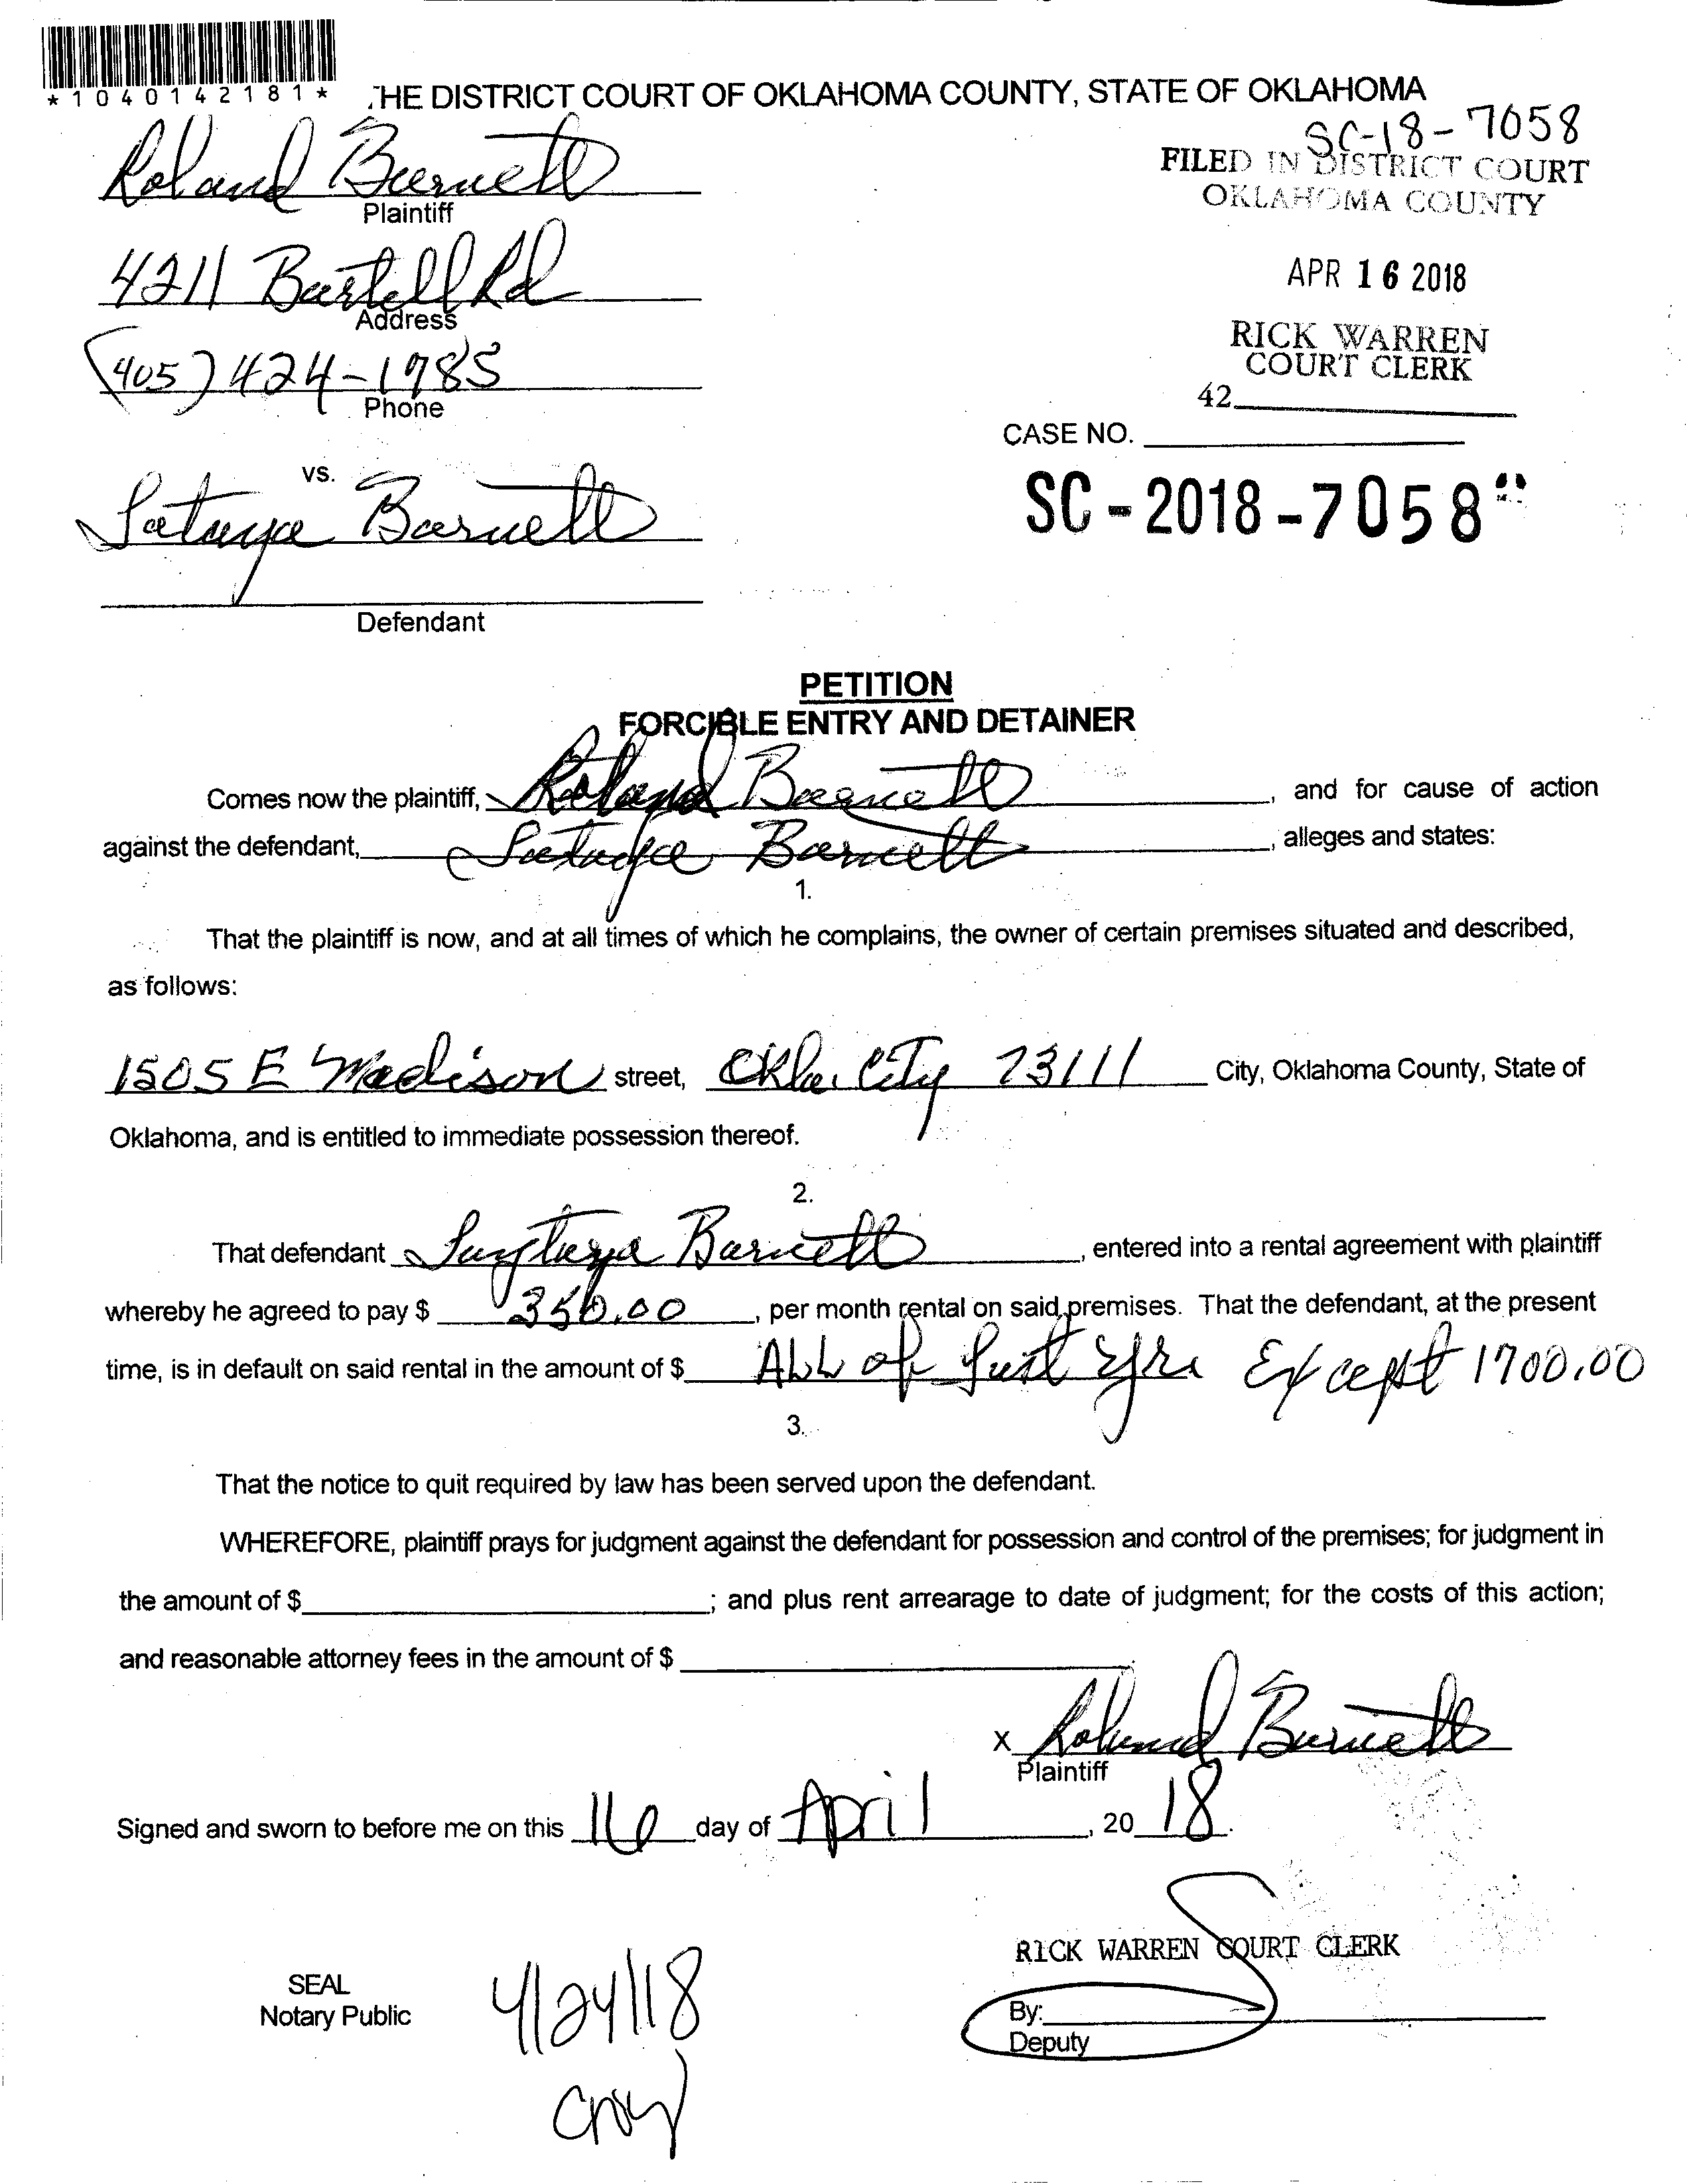 *1040142181*
THE DISTRICT COURT OF OKLAHOMA COUNTY, STATE OF OKLAHOMA
SC-18-7058
Roland Barnett
Plaintiff
FILED IN DISTRICT COURT
OKLAHOMA COUNTY
4211 Bartell Rd
Address
APR 16 2018
(405) 424-1985
Phone
RICK WARREN
COURT CLERK
42
CASE NO.
vs.
Barnett
SC-2018-7058
Defendant
PETITION
FORCIBLE ENTRY AND DETAINER
Comes now the plaintiff, Roland Barnett, and for cause of action
against the defendant, Barnett, alleges and states:
1.
That the plaintiff is now, and at all times of which he complains, the owner of certain premises situated and described,
as follows:
1505 E Madison street, Okla. City 73111 City, Oklahoma County, State of
Oklahoma, and is entitled to immediate possession thereof.
2.
That defendant Barnett, entered into a rental agreement with plaintiff
whereby he agreed to pay $ 350.00, per month rental on said premises. That the defendant, at the present
time, is in default on said rental in the amount of $ ALL of Last Yr Except 1700.00
3.
That the notice to quit required by law has been served upon the defendant.
WHEREFORE, plaintiff prays for judgment against the defendant for possession and control of the premises; for judgment in
the amount of $ ; and plus rent arrearage to date of judgment; for the costs of this action;
and reasonable attorney fees in the amount of $
x Roland Barnett
Plaintiff
Signed and sworn to before me on this 16 day of April, 20 18.
RICK WARREN COURT CLERK
SEAL
Notary Public
4/24/18
By:
Deputy